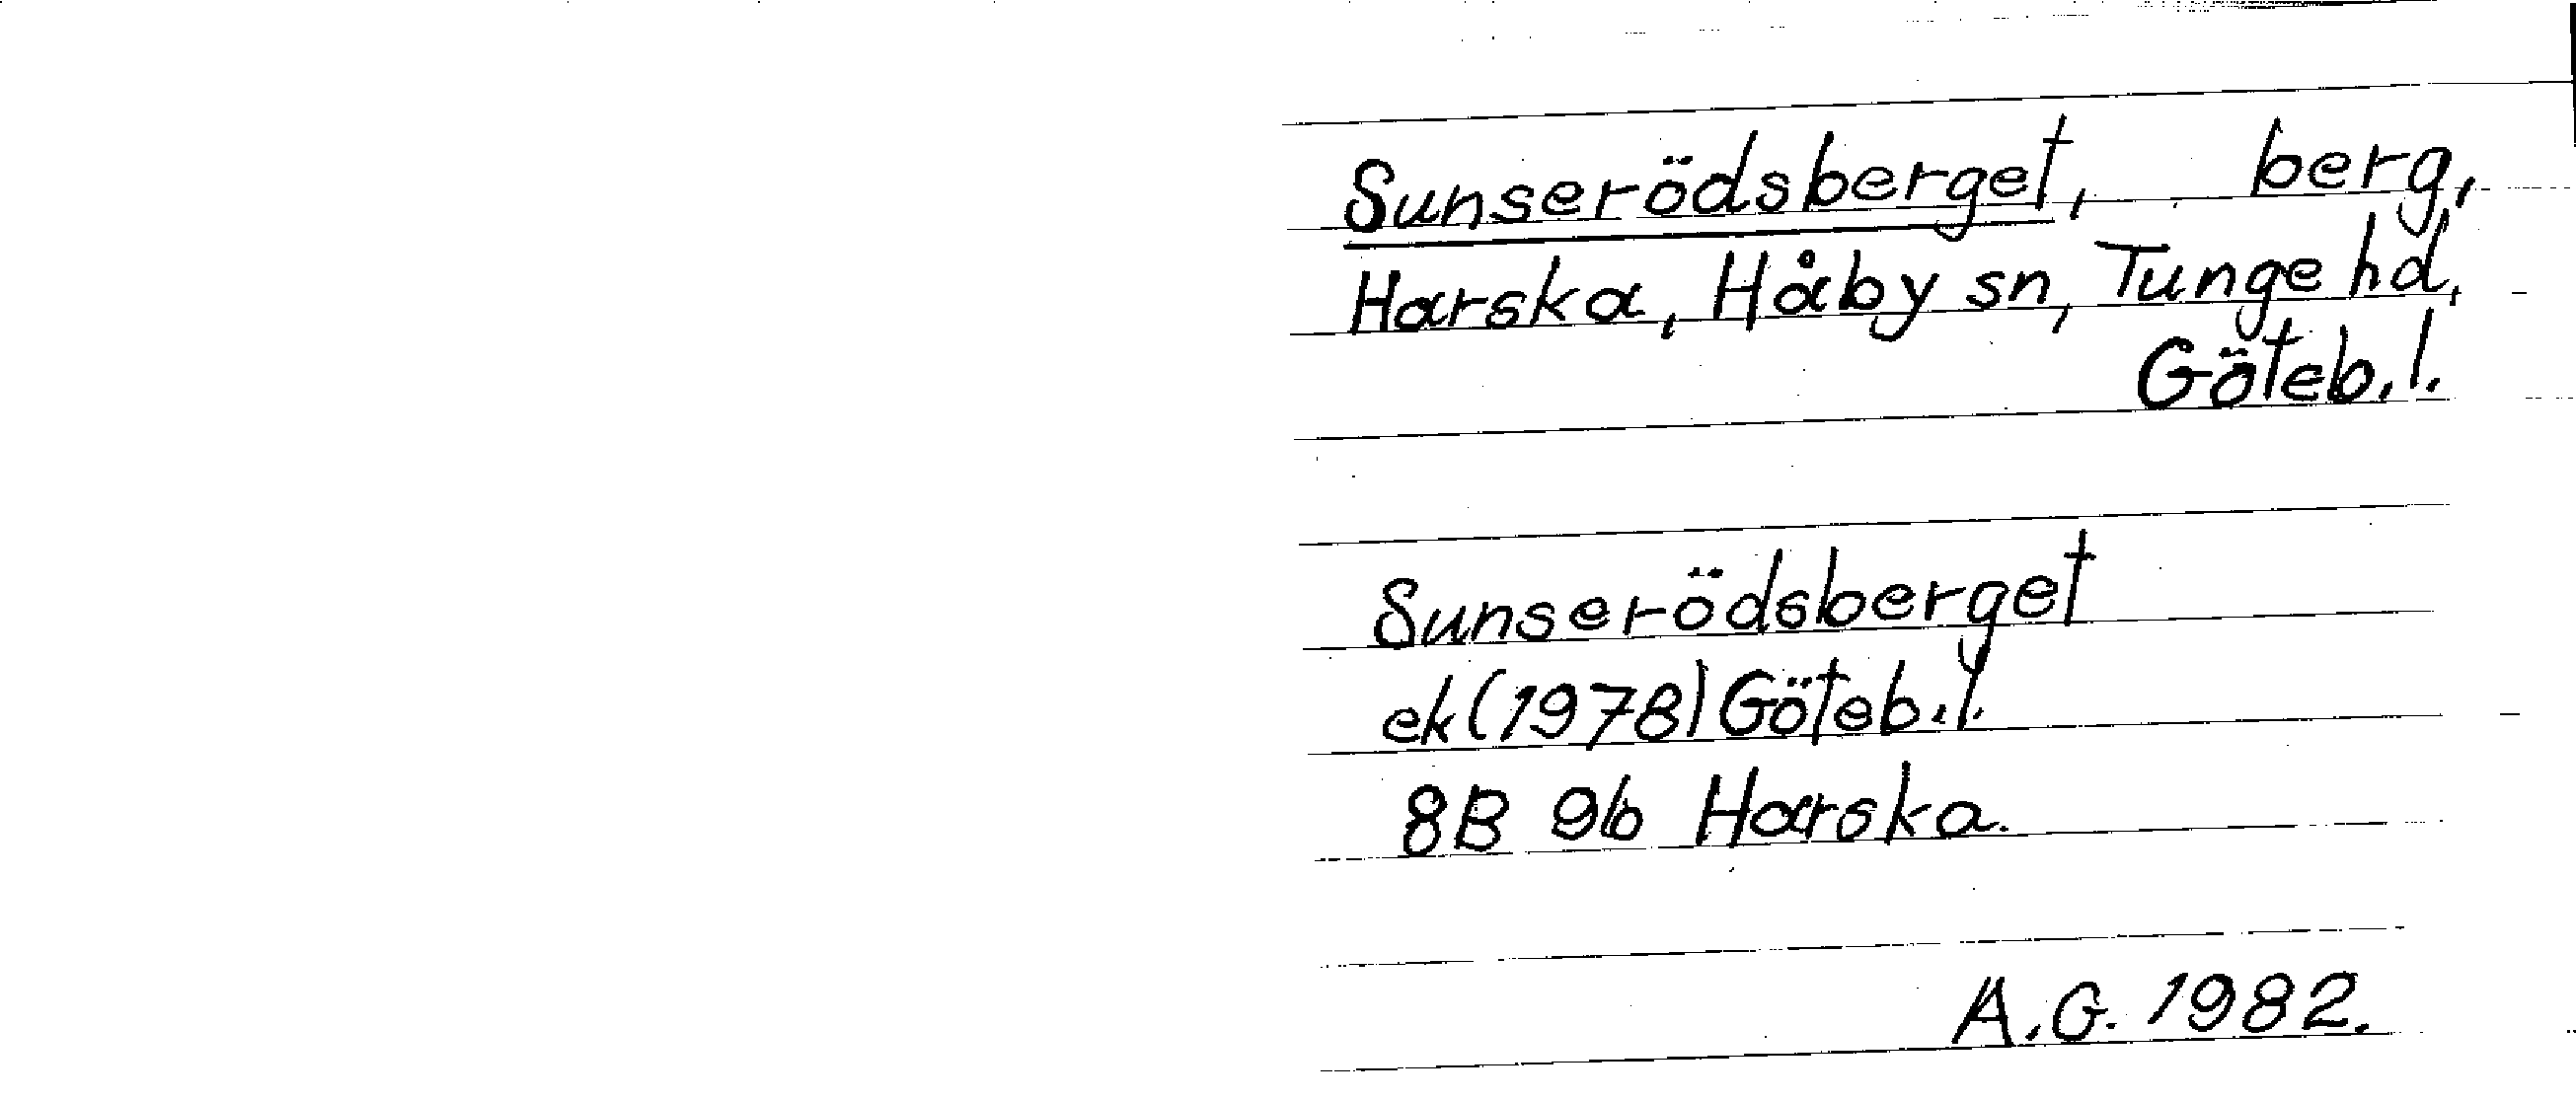 Sunserödsberget, berg,
Harska, Håby sn, Tunge hd,
Göteb. l.
Sunserödsberget
ek (1978) Göteb. l.
8B 9b Harska.
A.G. 1982.